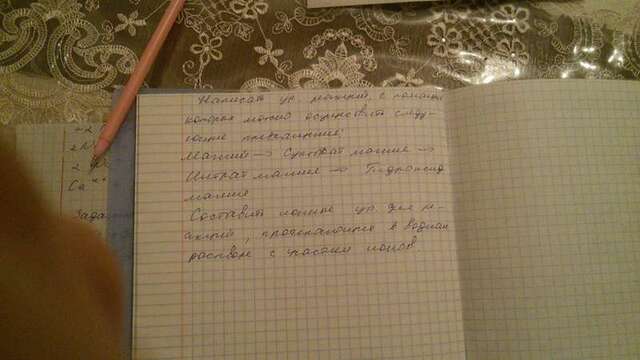 Написать ур. реакций, с помощью
которых можно осуществить следу-
ющие превращения:
Магний → Сульфат магния →
Нитрат магния → Гидроксид
магния
Составить ионные ур. для ре-
акций, протекающие в водном
растворе с участием ионов.
+2
2
Ca
Задан